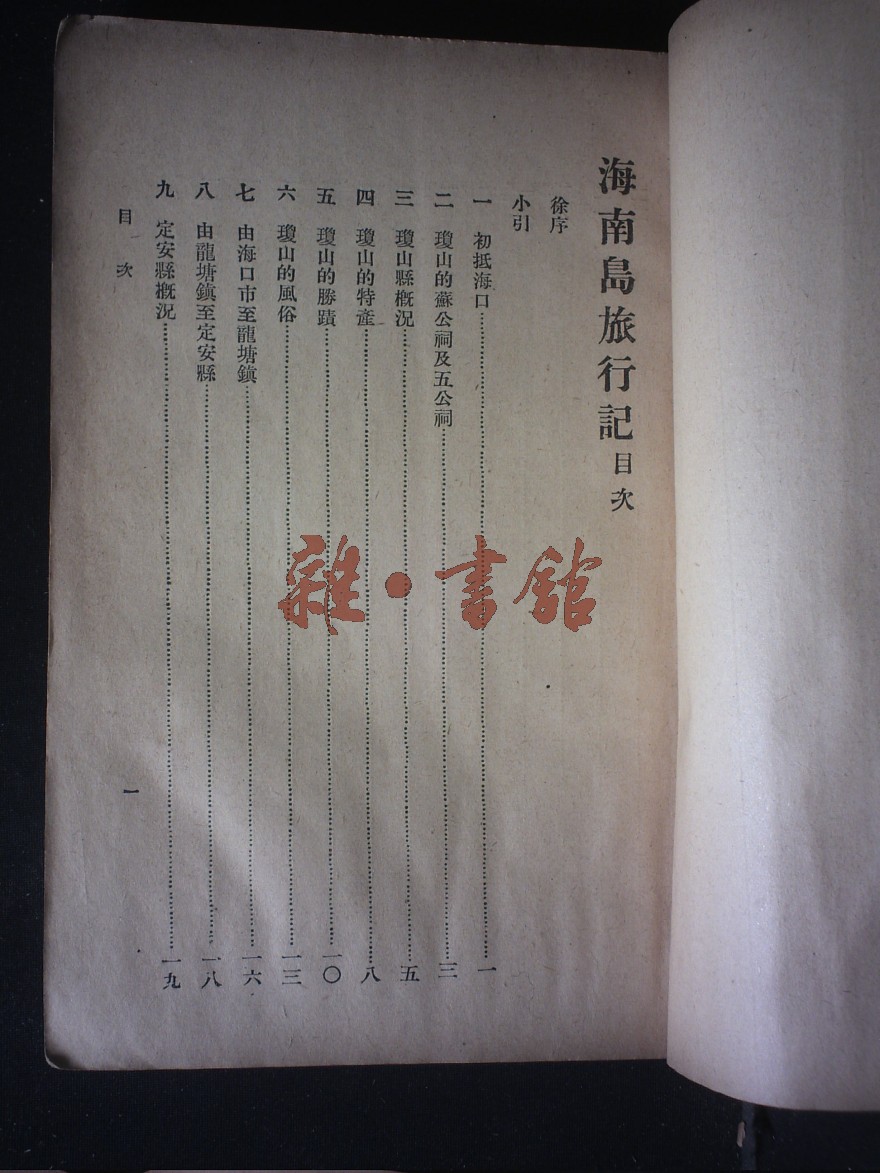 海南島旅行記目次
徐序
小引
一 初抵海口……一
二 瓊山的蘇公祠及五公祠……三
三 瓊山縣概況……五
四 瓊山的特產……八
五 瓊山的勝蹟……一〇
六 瓊山的風俗……一三
七 由海口市至龍塘鎮……一六
八 由龍塘鎮至定安縣……一八
九 定安縣概況……一九
目次
一
雜·書館